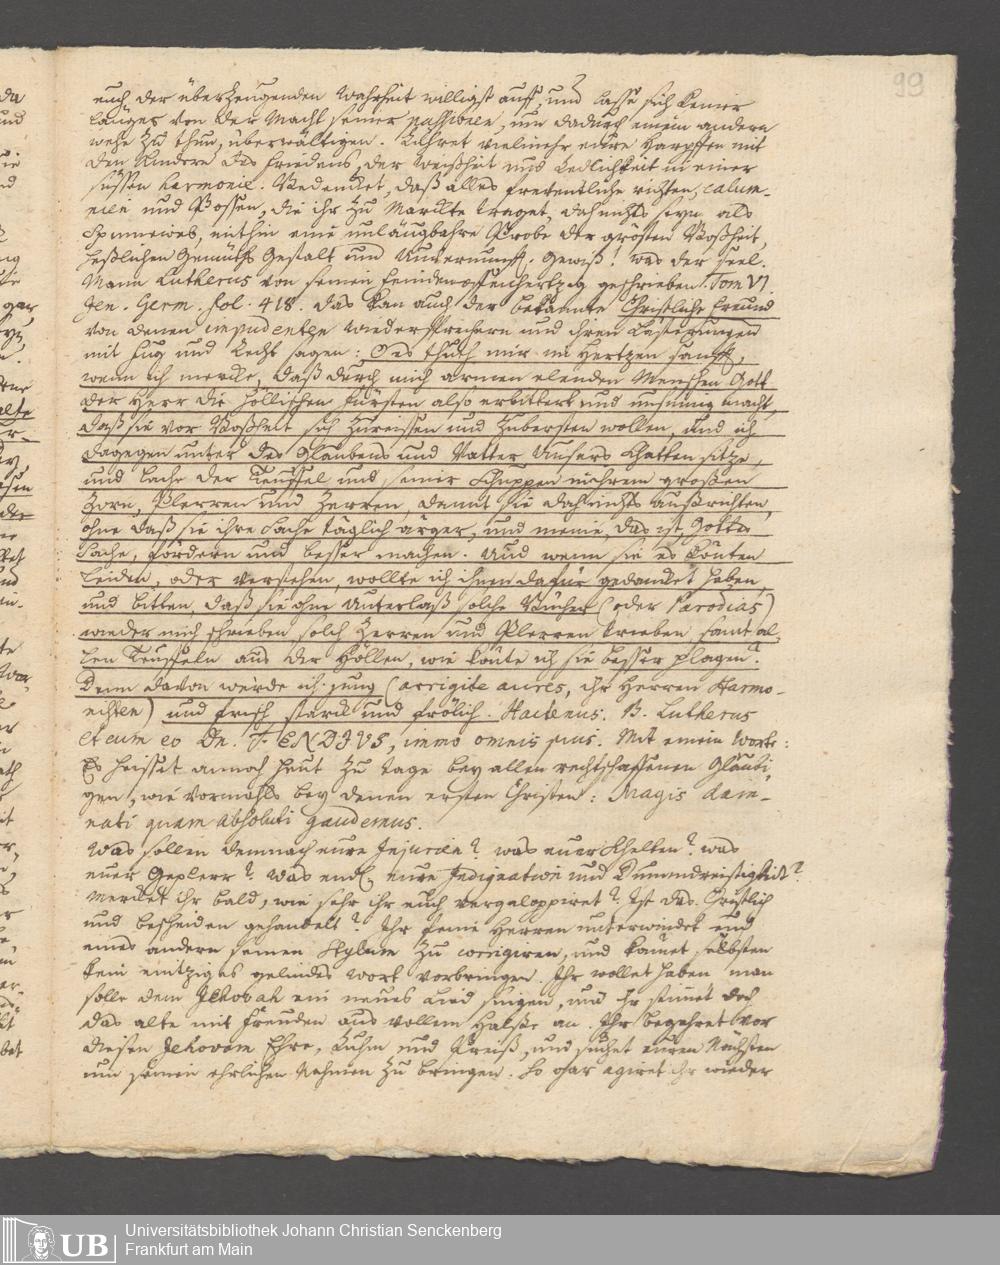 99
euch der überzeugenden Wahrheit willigst auff, und lasse sich keiner
länger von der Macht seiner passionen, um dadurch einem andern
wehe zu thun, überwältigen. Rühret vielmehr eure Harpffen mit
den Kindern des Friedens, der Weißheit und Redlichkeit in einer
süssen harmonie. Bedencket, daß alles freventliche richten, calum-
nien und Possen, die ihr zu Marckte traget, doch nichts seyn als
Spinneweb, mithin eine unläugbahre Probe der grösten Boßheit,
heßlichen Gemüths Gestalt und Unvernunfft. Gewiß! was der seel.
Mann Lutherus von seinen Feinden offenhertzig geschrieben Tom VI.
Jen. Germ. fol. 418. das kan auch der bekannte Christliche Freund
von denen impudenten Wiedersprechern und ihren Lästerungen
mit Fug und Recht sagen: Es thuth mir im Hertzen sanfft,
wenn ich mercke, daß durch mich armen elenden Menschen Gott
der Herr die höllischen Fürsten also erbittert und unsinnig macht,
daß sie vor Boßheit sich zureissen und zubersten wollen, und ich
dagegen unter des Glaubens und Vatter Unsers Schatten sitze,
und lache der Teuffel und seiner Schuppen in ihrem grossen
Zorn, Plerren und Zerren, damit sie doch nichts außrichten,
ohne daß sie ihre Sache täglich ärger, und meine, das ist, Gottes
Sache, fordern und besser machen. Und wenn sie es könten
leiden, oder verstehen, wollte ich ihnen dafür gedancket haben,
und bitten, daß sie ohne Unterlaß solche Bücher (oder Parodias)
wieder mich schrieben solch Zerren und Plerren trieben samt al-
len Teuffeln aus der Höllen, wie könte ich sie besser plagen?
Denn davon werde ich jung (arrigite aures, ihr Herren Harmo-
nichten) und frisch, starck und frölich. Hactenus. B. Lutherus
et cum eo Dn. TENDIVS, immo omnis pius. Mit einem Worte:
Es heisset annoch heut zu tage bey allen rechtschaffenen Gläubi-
gen, wie vormahls bey denen ersten Christen: Magis dam-
nati quam absoluti gaudemus.
Was sollen demnach eure Injurien? was euer Schelten? was
euer Geplerr? was endl. eure Indignation und Dummdreistigkeit?
Mercket ihr bald, wie sehr ihr euch vergaloppiret? Ist das Christlich
und bescheiden gehandelt? Ihr feine Herren unterwindet euch
eines andern seinen Stylum zu corrigiren, und könnet selbsten
kein eintziges gelindes Wort vorbringen. Ihr wollet haben man
solle dem Jehovah ein neues Lied singen, und ihr stimmet doch
das alte mit Freuden aus vollem Halße an. Ihr begehret vor
diesen Jehovam Ehre, Ruhm und Preiß, und suchet euren Nächsten
um seinen ehrlichen Nahmen zu bringen. So gar agiret ihr wieder
UB
Universitätsbibliothek Johann Christian Senckenberg
Frankfurt am Main